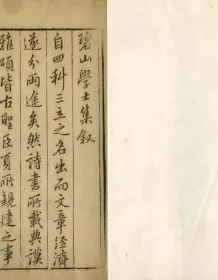 碧山學士集叙
自四科三立之名出而文章經濟
遂分兩途矣然詩書所載典謨
雅頌皆古聖臣身所親建之事